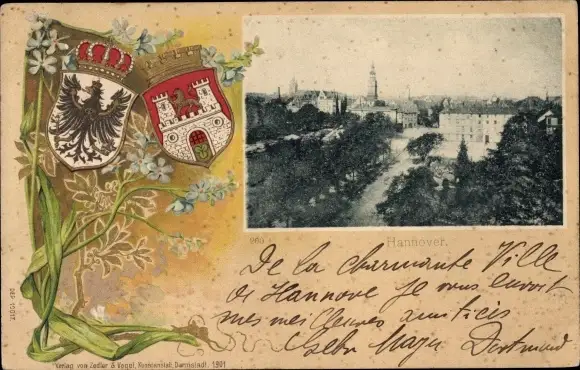 265
Hannover.
De la charmante Ville
de Hannove je vous envoit
mes meilleures amitiés
Dortmund
Verlag von Zedler & Vogel, Kunstanstalt, Darmstadt. 1901